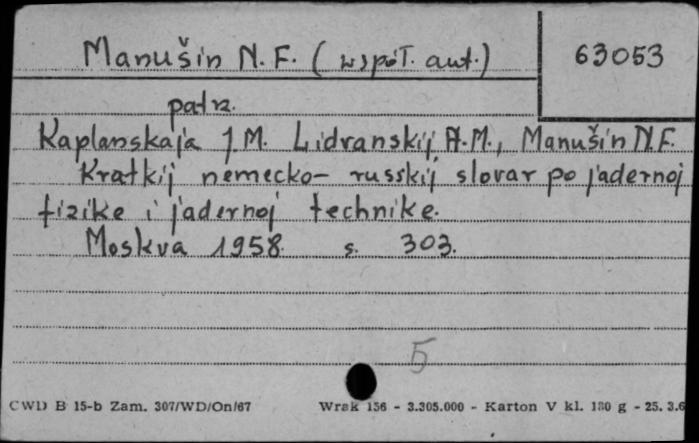 Manušin N. F. (współ. aut.)
63053
patrz.
Kaplanskaja J.M. Lidvanskij A.M., Manušin N.F.
Kratkij nemecko-russkij slovar po jadernoj
fizike i jadernoj technike.
Moskva 1958 s. 303.
5
CWD B 15-b Zam. 307/WD/On/67 Wrak 136 - 3.305.000 - Karton V kl. 180 g - 25. 3.6